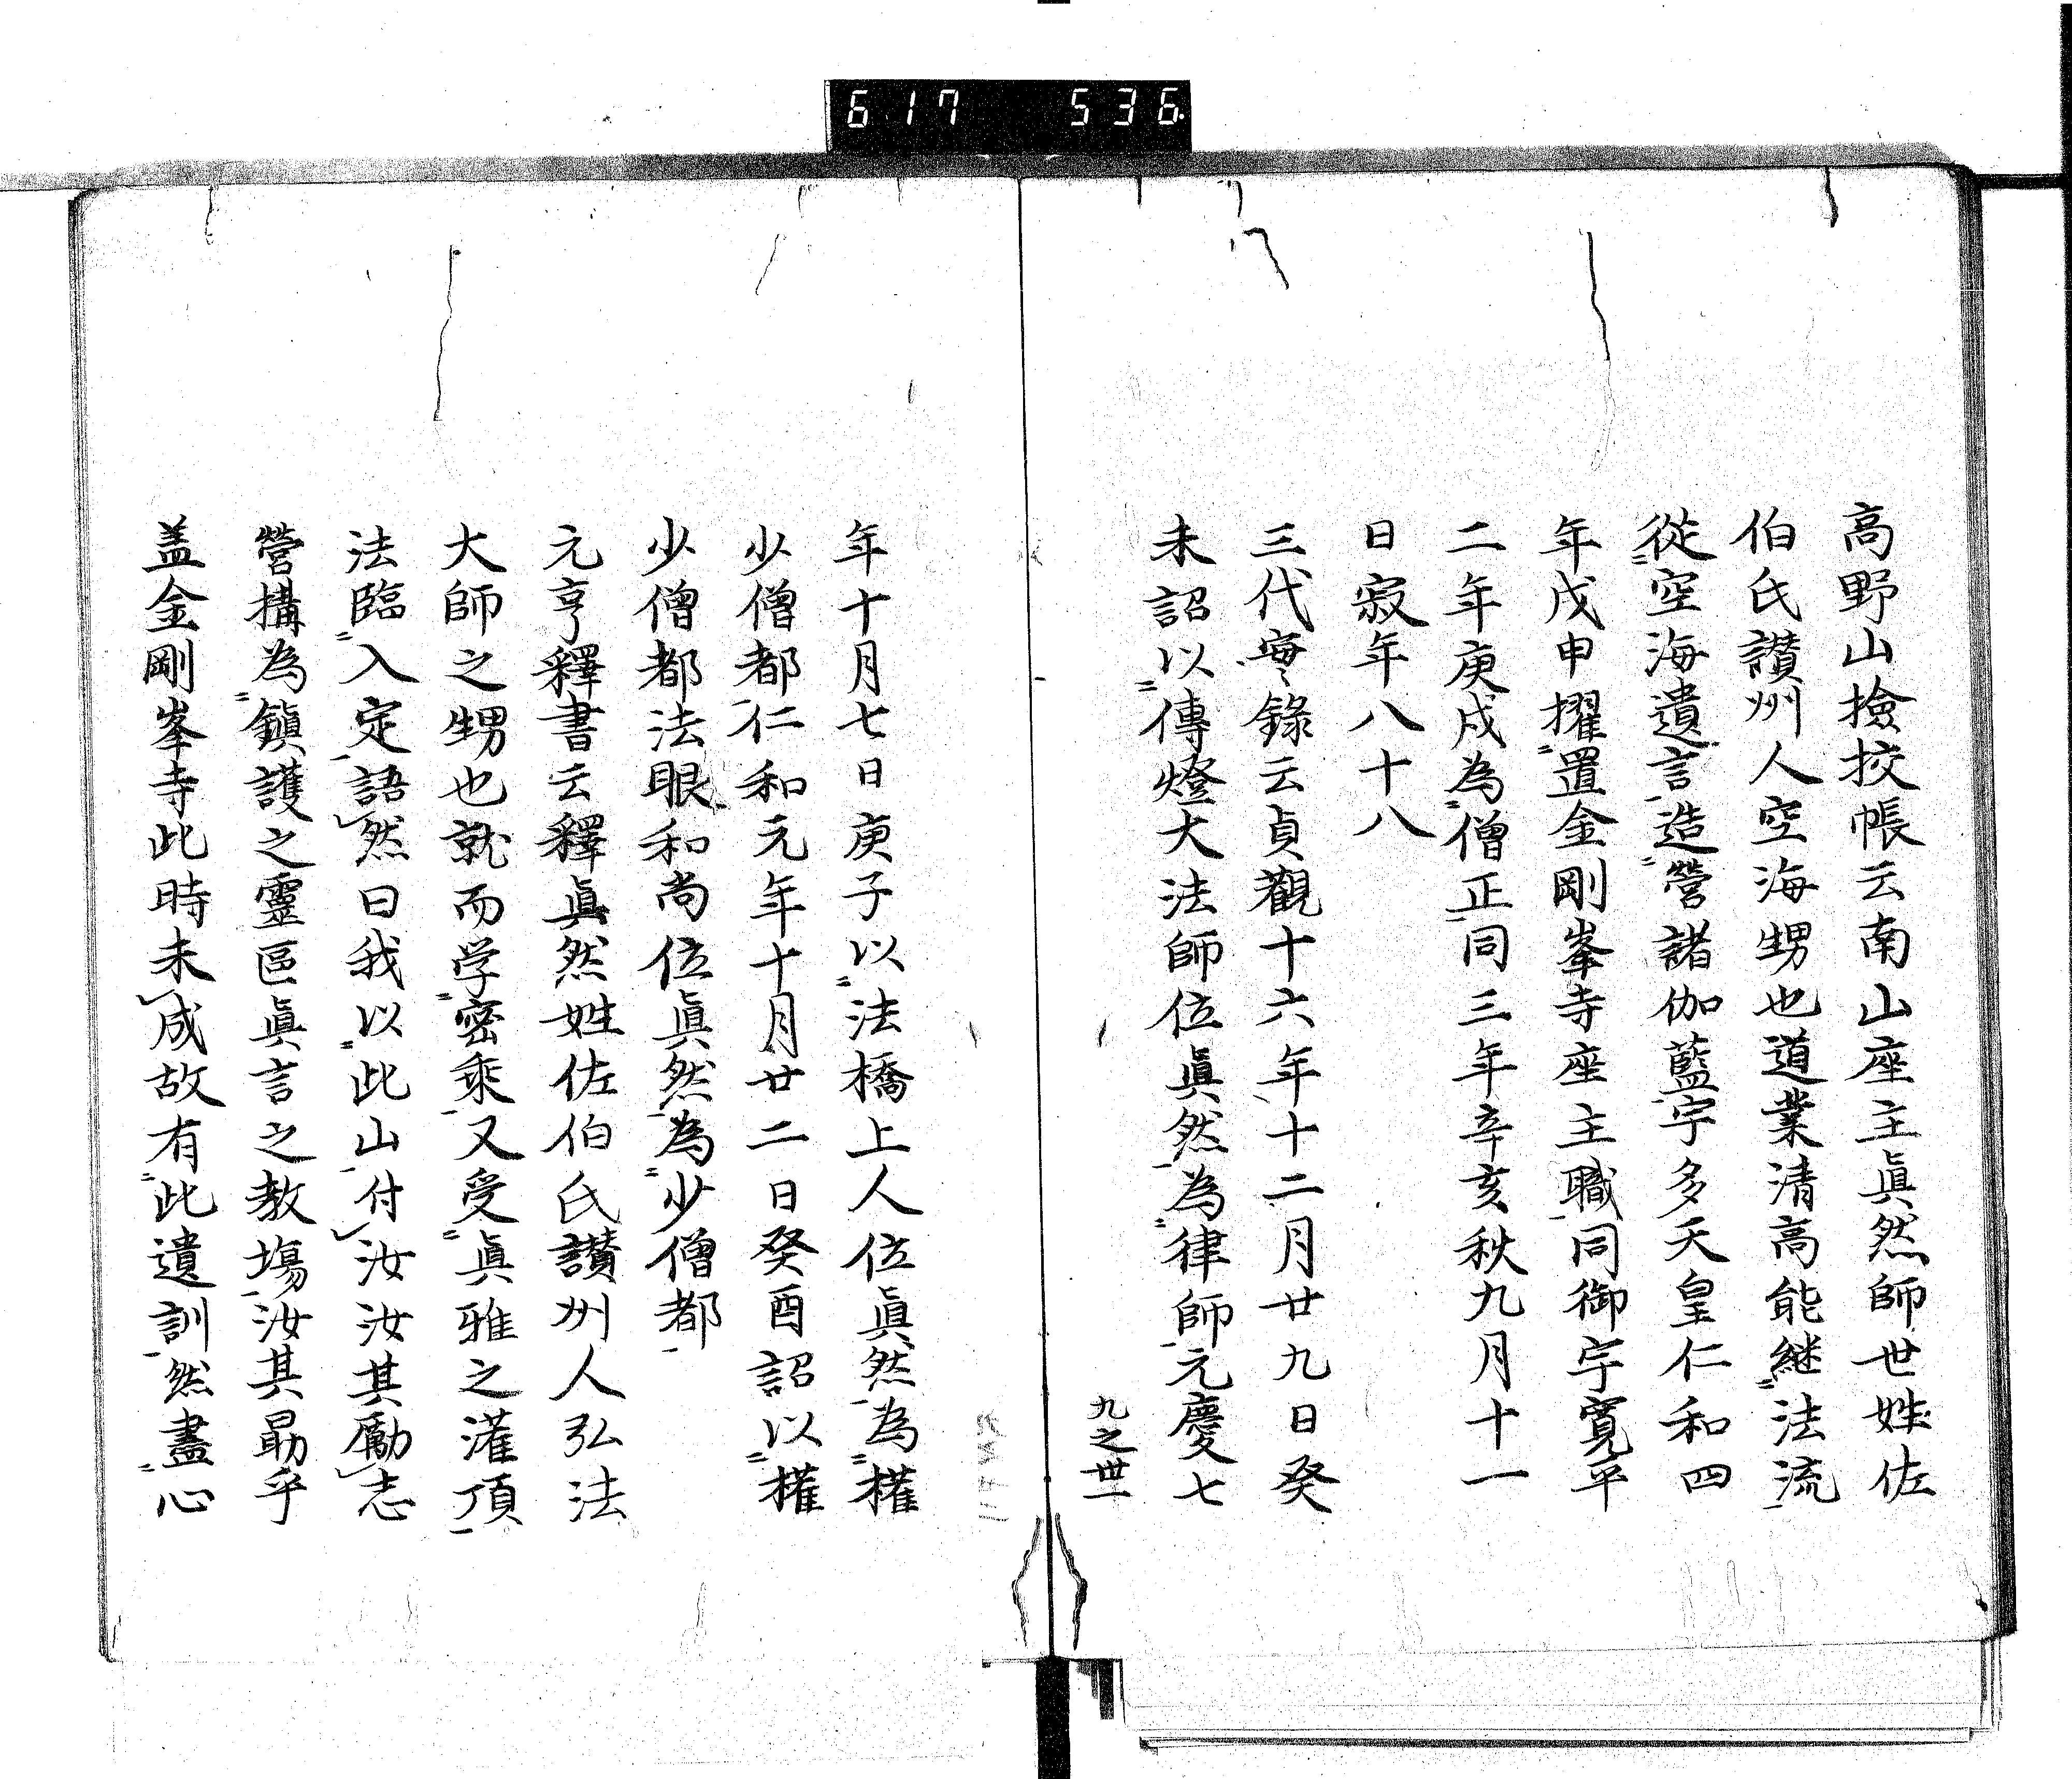 617 536
高野山撿挍帳云南山座主眞然師世姓佐
伯氏讃州人空海甥也道業清高能継法流
從空海遺言造營諸伽藍宇多天皇仁和四
年戊申擢置金剛峯寺座主職同御宇寛平
二年庚戌為僧正同三年辛亥秋九月十一
日寂年八十八
三代實錄云貞觀十六年十二月廿九日癸
未詔以傳燈大法師位眞然為律師元慶七
九之丗一
年十月七日庚子以法橋上人位眞然為權
少僧都仁和元年十月廿二日癸酉詔以權
少僧都法眼和尚位眞然為少僧都
元亨釋書云釋眞然姓佐伯氏讃州人弘法
大師之甥也就而学密乘又受眞雅之灌頂
法臨入定語然曰我以此山付汝汝其勵志
營構為鎮護之靈區眞言之教塲汝其勗乎
盖金剛峯寺此時未成故有此遺訓然盡心